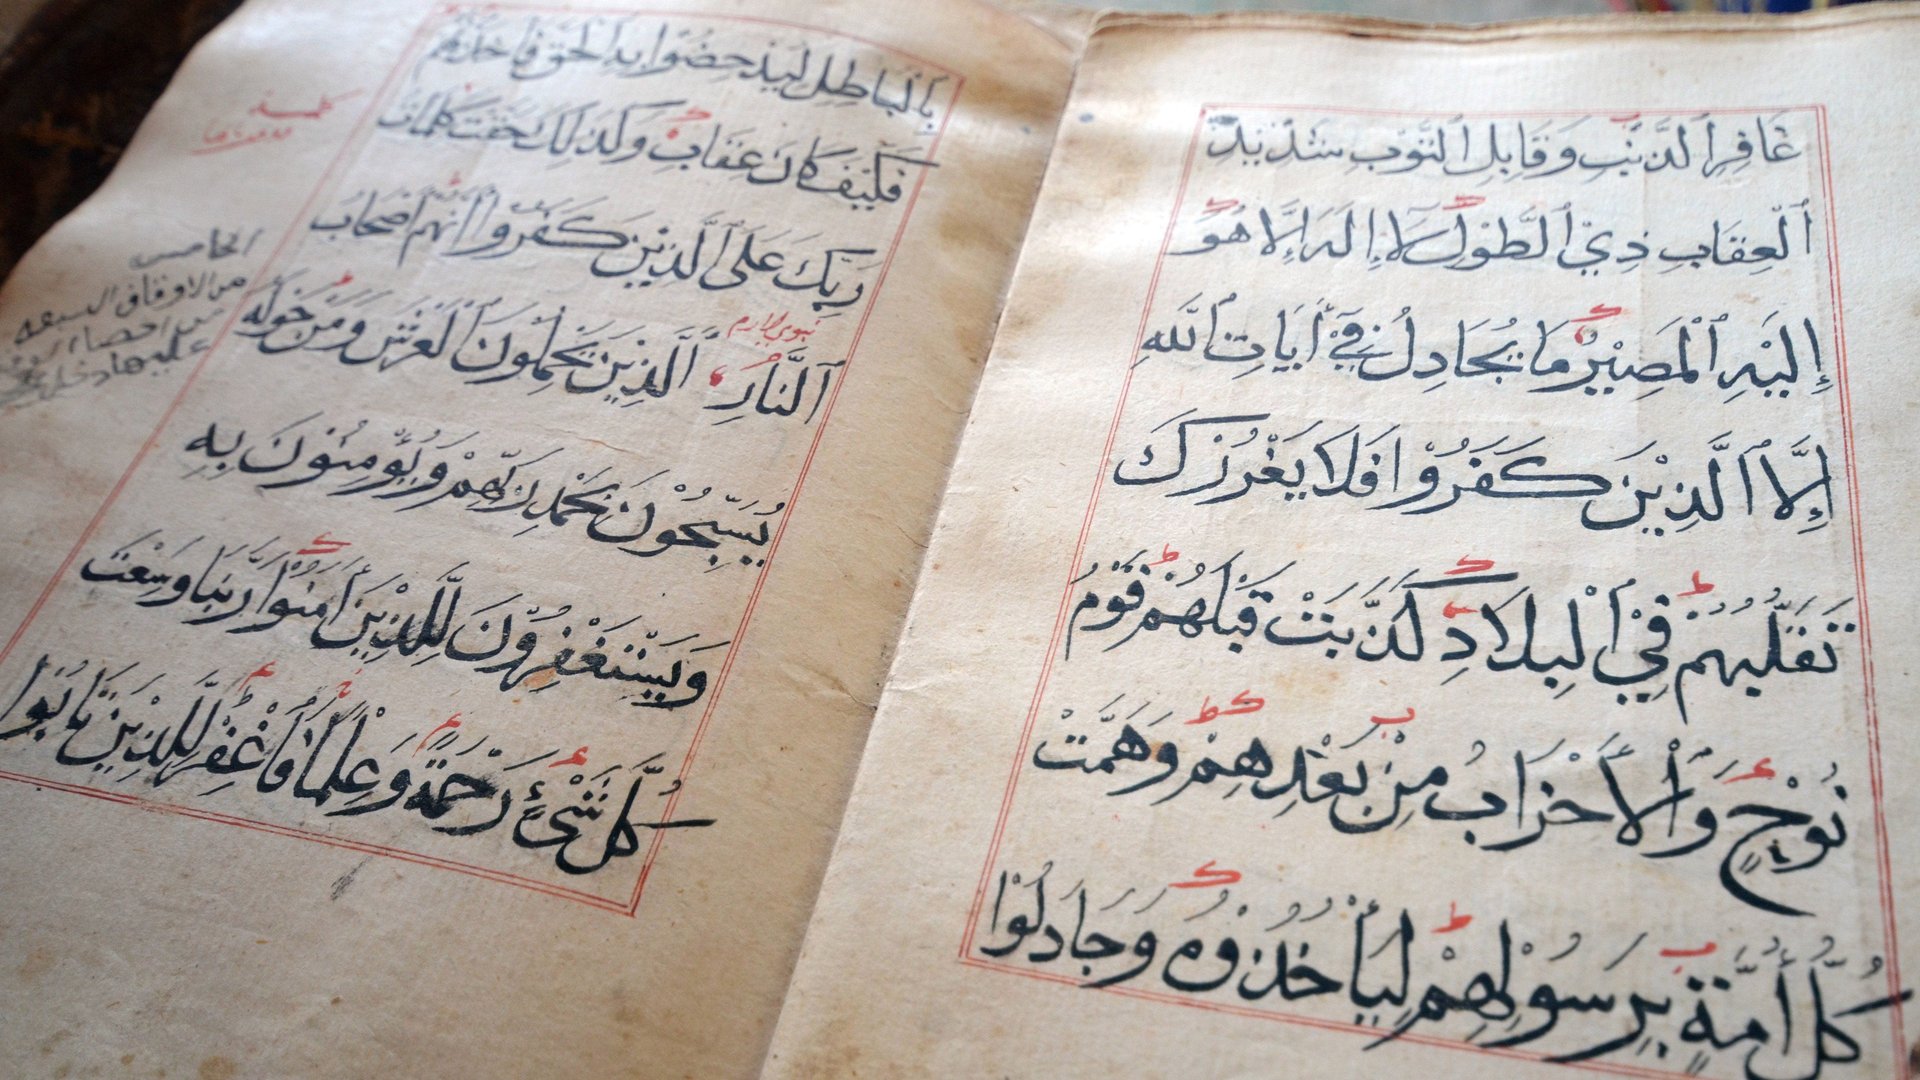 غَافِرِ ٱلذَّنْبِ وَقَابِلِ ٱلتَّوْبِ شَدِيْدِ
ٱلْعِقَابِ ذِيْ ٱلطَّوْلِ لَا إِلَهَ إِلَّا هُوَ
إِلَيْهِ ٱلْمَصِيْرُ مَا يُجَادِلُ فِيْ أَيَاتِ ٱللَّهِ
إِلَّا ٱلَّذِيْنَ كَفَرُوْا فَلَا يَغْرُرْكَ
تَقَلُّبُهُمْ فِيْ ٱلْبِلَادِ كَذَّبَتْ قَبْلَهُمْ قَوْمُ
نُوْحٍ وَٱلْأَحْزَابُ مِنْ بَعْدِهِمْ وَهَمَّتْ
كُلُّ أُمَّةٍ بِرَسُوْلِهِمْ لِيَأْخُذُوْهُ وَجَادَلُوْا
بِالْبَاطِلِ لِيُدْحِضُوْا بِهِ الْحَقَّ فَأَخَذْتُهُمْ
فَكَيْفَ كَانَ عِقَابِ وَكَذَلِكَ حَقَّتْ كَلِمَاتُ
رَبِّكَ عَلَى ٱلَّذِيْنَ كَفَرُوْا أَنَّهُمْ أَصْحَابُ
ٱلنَّارِ ٱلَّذِيْنَ يَحْمِلُوْنَ ٱلْعَرْشَ وَمَنْ حَوْلَهُ
يُسَبِّحُوْنَ بِحَمْدِ رَبِّهِمْ وَيُؤْمِنُوْنَ بِهِ
وَيَسْتَغْفِرُوْنَ لِلَّذِيْنَ أَمَنُوْا رَبَّنَا وَسِعْتَ
كُلَّ شَيْءٍ رَحْمَةً وَعِلْمًا فَاغْفِرْ لِلَّذِيْنَ تَابُوْا
الخامس
من الاوقاف السبعة